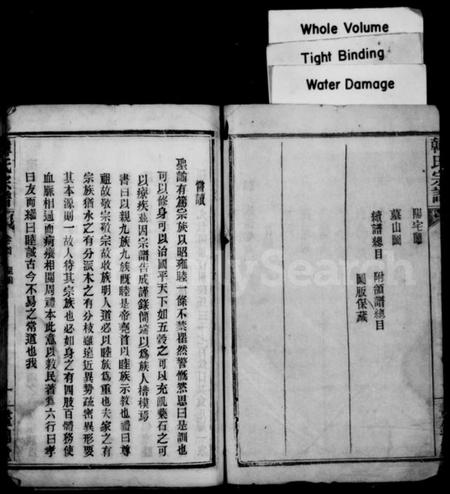 Whole Volume
Tight Binding
Water Damage
韓氏宗譜
陽宅圖
墓山圖
續譜總目 附領譜總目
圖版保藏
嘗讀
聖諭有篤宗族以昭雍睦一條不禁瞿然警慨然思曰是訓也
可以修身可以治國平天下如五穀之可以充飢藥石之可
以療疾茲因宗譜告成謹錄簡端以為族人楷模焉
書曰以親九族九族既睦是帝堯首以睦族示教也禮曰尊
祖故敬宗敬宗故收族明人道必以睦族為重也夫家之有
宗族猶水之有分派木之有分枝雖遠近異勢疏密異形要
其本源則一故人待其宗族也必如身之有四肢百體務使
血脈相通而疴癢相關周禮本此意以教民著為六行曰孝
曰友而繼曰睦誠古今不易之常道也我